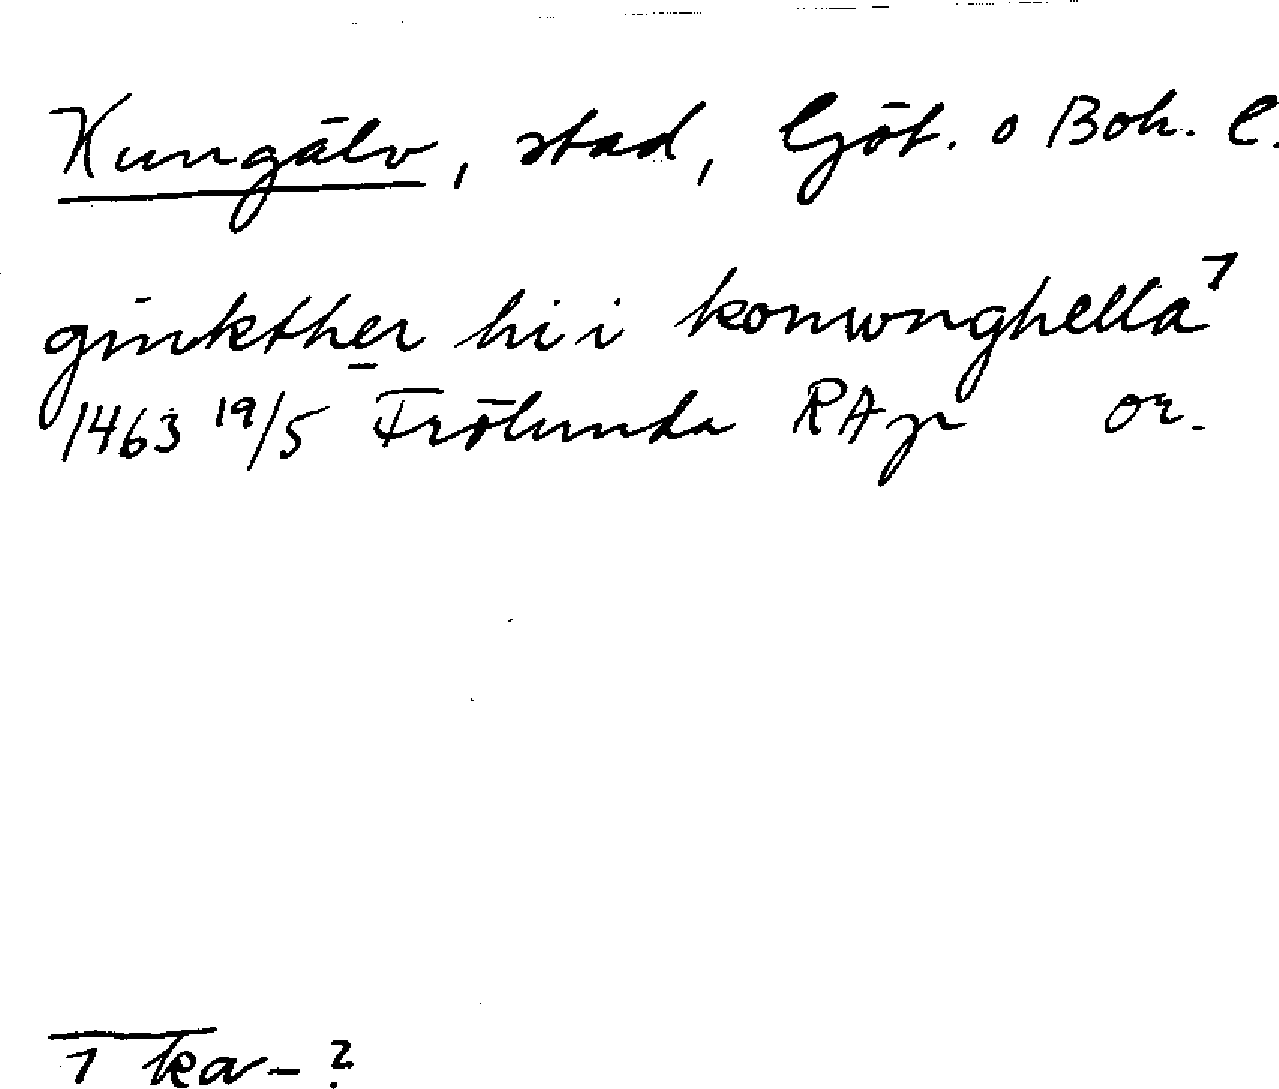 Kungälv, stad, Göt. o Boh. l.
ginkther hi i konwnghella ¹
1463 19/5 Frölunda RAp or.
1 ka- ?